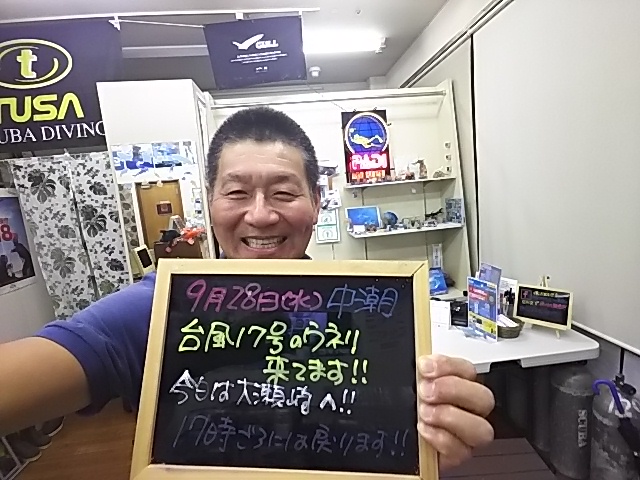 TUSA
SCUBA DIVING
GULL
PADI
9月28日(水) 中潮
台風17号のウネリ
来てます!!
今日は大瀬崎へ!!
17時ごろには戻ります!!
SCUBA